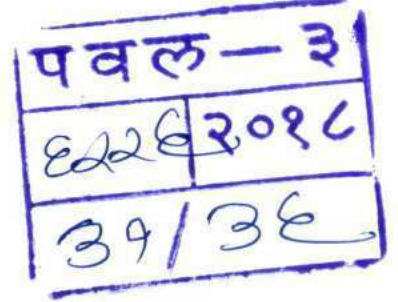 पवल — ३
६२२६ २०१८
३१/३६